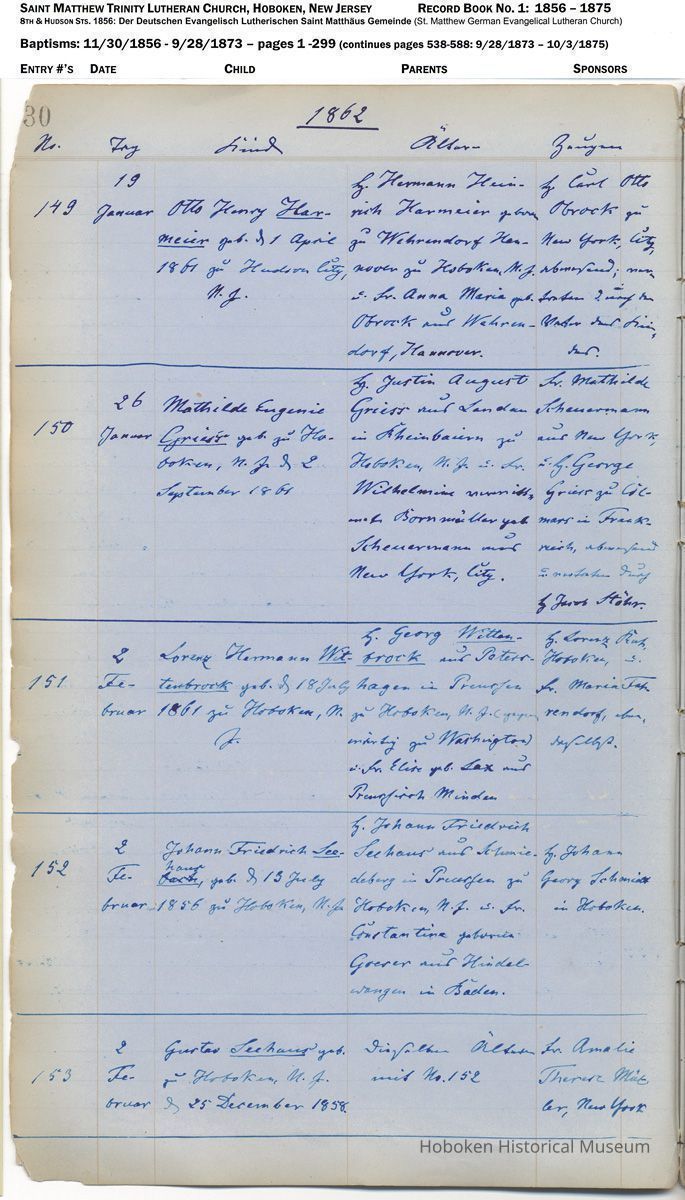 SAINT MATTHEW TRINITY LUTHERAN CHURCH, HOBOKEN, NEW JERSEY RECORD BOOK NO. 1: 1856 – 1875
8TH & HUDSON STS. 1856: Der Deutschen Evangelisch Lutherischen Saint Matthäus Gemeinde (St. Matthew German Evangelical Lutheran Church)
Baptisms: 11/30/1856 - 9/28/1873 – pages 1 -299 (continues pages 538-588: 9/28/1873 – 10/3/1875)
ENTRY #'S DATE CHILD PARENTS SPONSORS
30
1862
No. Tag Kind Älter- Zeugen
149
19
Januar
Otto Henry Har-
meier geb. d 1 April
1861 zu Hudson City,
N. J.
H. Hermann Hein-
rich Harmeier geboren
zu Wehrendorf Han-
nover zu Hoboken, N. J.
u. Fr. Anna Maria geb.
Obrock aus Wehren-
dorf, Hannover.
H. Carl Otto
Obrock zu
New York, City,
abwesend, ver-
treten durch den
Vater des Kin-
des.
150
26
Januar
Mathilde Eugenie
Griess geb. zu Ho-
boken, N. J. d 2
September 1861
H. Justin August
Griess aus Landau
in Rheinbaiern zu
Hoboken, N. J. u. Fr.
Wilhelmine
Bornmüller geb
Scheuermann aus
New York, City.
Fr. Mathilde
Scheuermann
aus New York,
u. H. George
Griess zu Col-
mar in Frank-
reich, abwesend
u. vertreten durch
H Jacob Stöhr.
151
2
Fe-
bruar
Lorenz Hermann Wit-
tenbrock geb. d 18 July
1861 zu Hoboken, N.
J.
H. Georg Witten-
brock aus Peters-
hagen in Preussen
zu Hoboken, N. J. (gegen-
wärtig zu Washington)
u. Fr. Elise geb. Lax aus
Preussisch Minden
H. Lorenz
Hoboken, u.
Fr. Maria Fah-
rendorf, eben-
daselbst.
152
2
Fe-
bruar
Johann Friedrich See-
haus, geb. d 13 July
1856 zu Hoboken, N. J.
H. Johann Friedrich
Seehaus aus Schmie-
deberg in Preussen zu
Hoboken, N. J. u. Fr.
Constantina geborene
Goerer aus Hindel-
wangen in Baden.
H. Johann
Georg Schmidt
in Hoboken.
153
2
Fe-
bruar
Gustav Seehaus geb.
zu Hoboken, N. J.
d 25 December 1858.
Dieselben Ältern
mit No. 152
Fr. Amalie
Therese Mül-
ler, New York
Hoboken Historical Museum